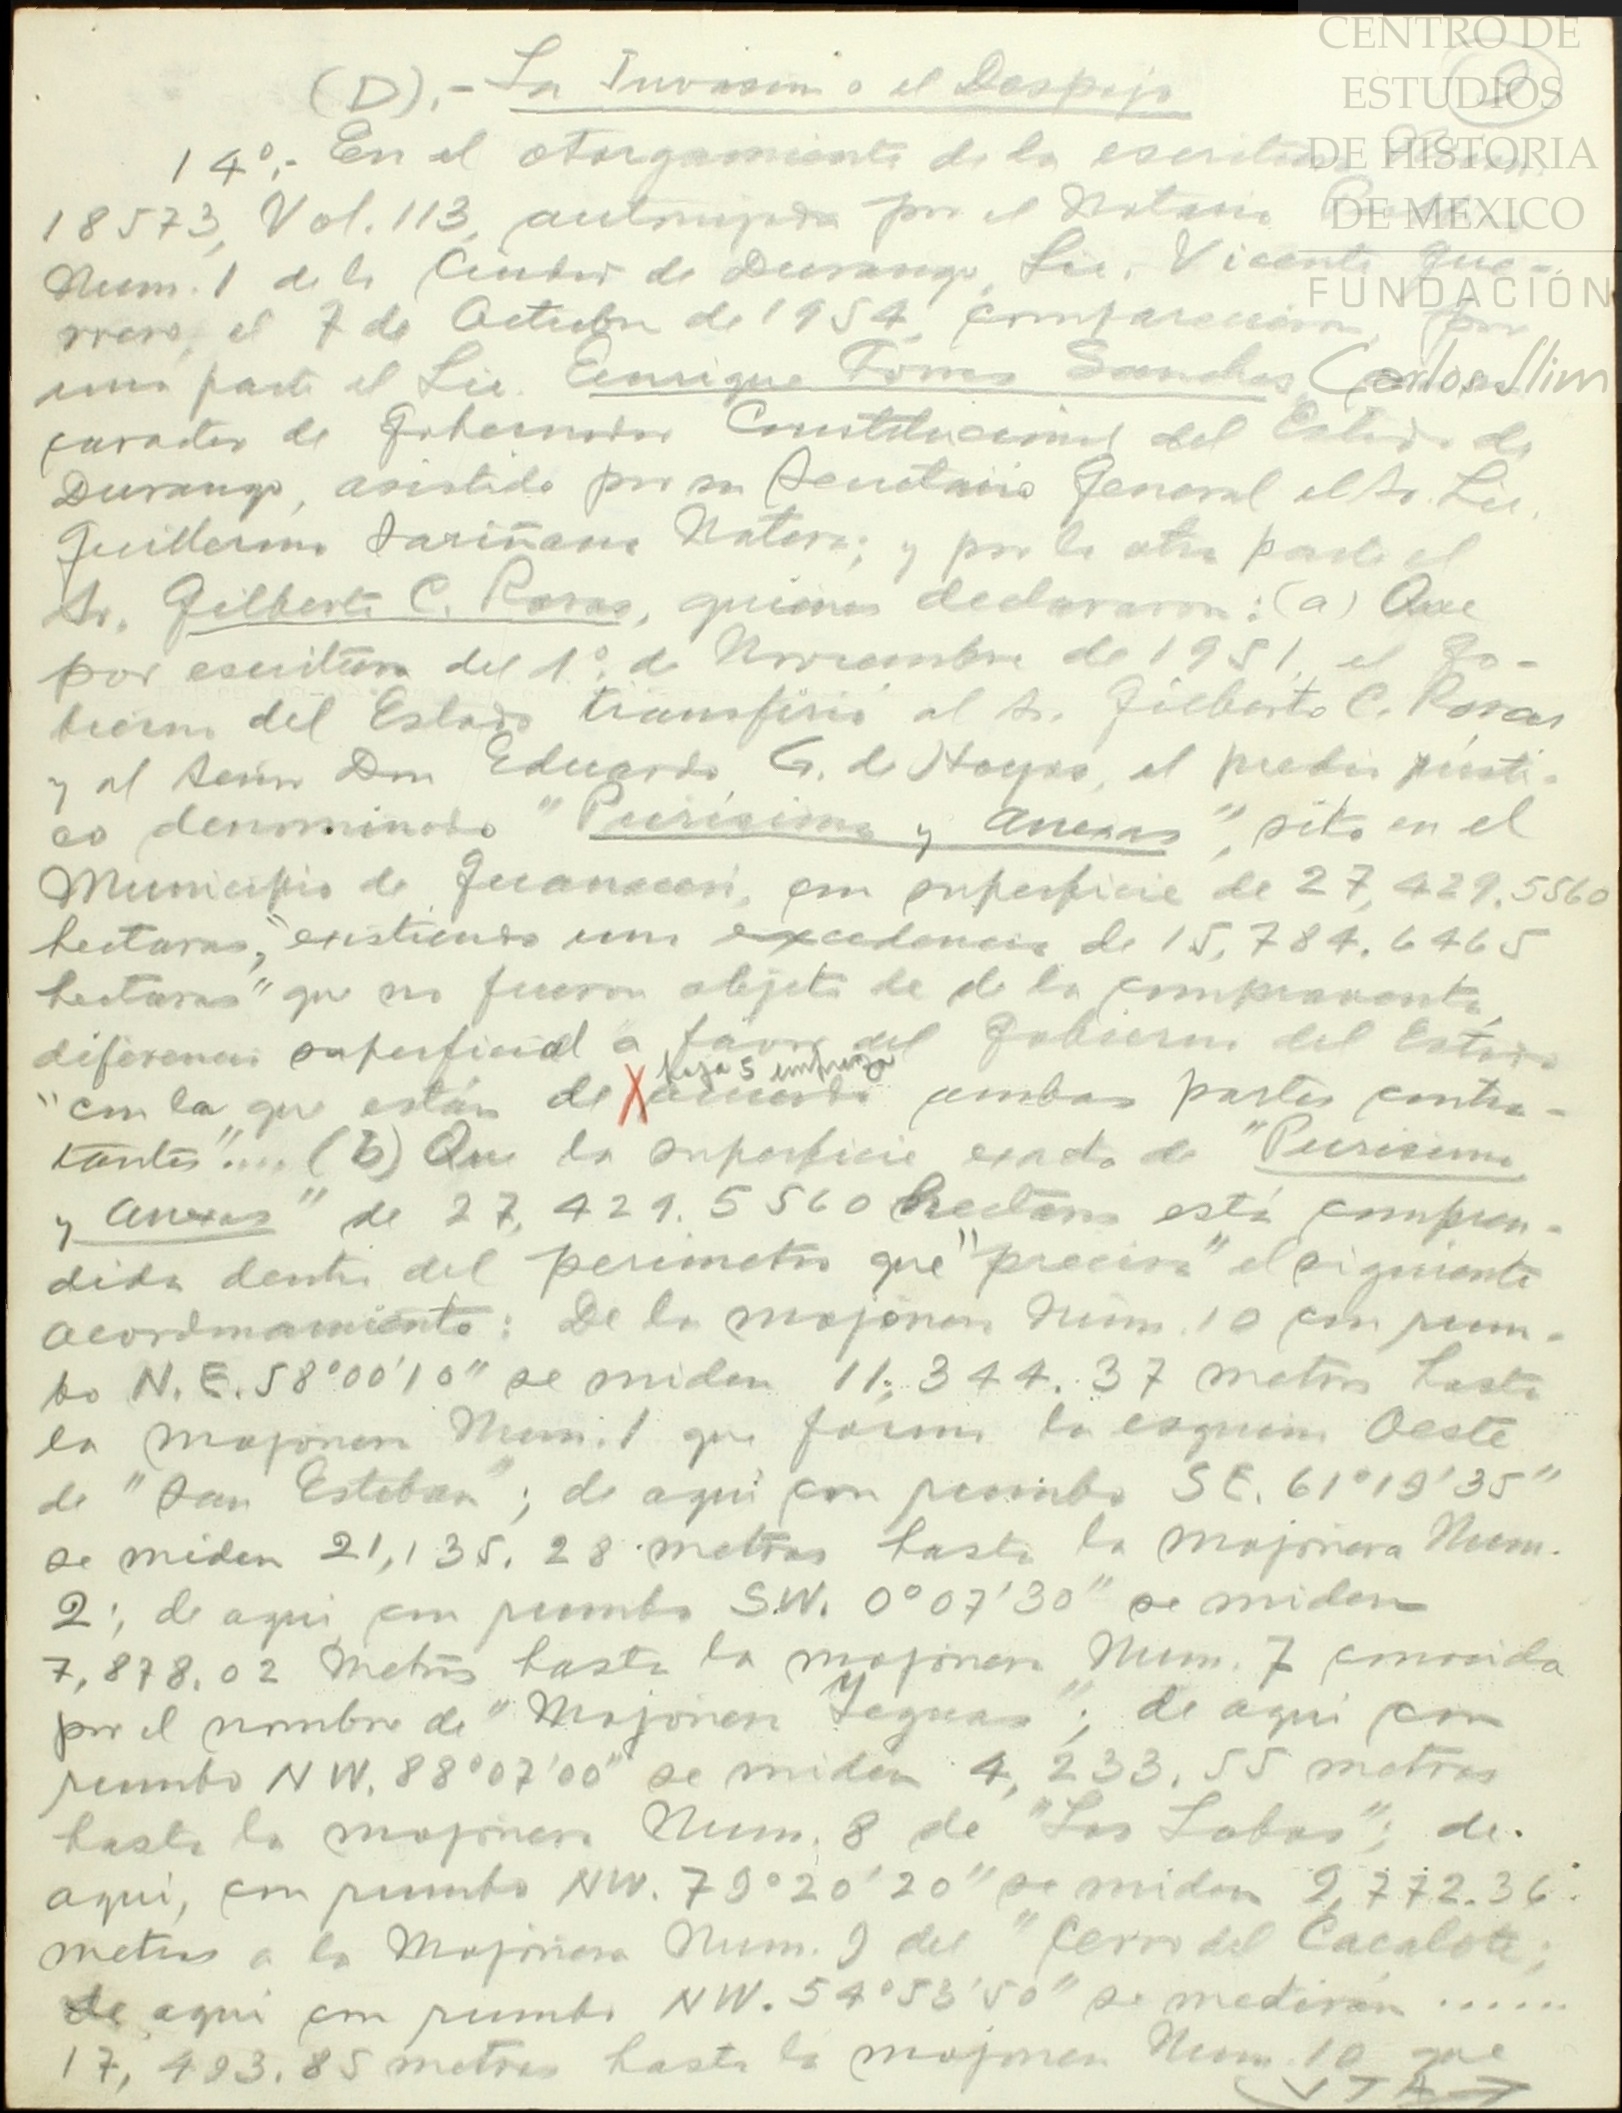 CENTRO DE
ESTUDIOS
DE HISTORIA
DE MEXICO
FUNDACIÓN
Carlos Slim
(D).- La Invasion o el Despojo
14º.- En el otorgamiento de la escritura
18573, Vol. 113, autorizada por el Notario
Num. 1 de la Ciudad de Durango, Lic. Vicente Gue-
rrero, el 7 de Octubre de 1954, comparecieron, por
una parte el Lic. Enrique Torres Sanchez,
caracter de Gobernador Constitucional del Estado de
Durango, asistido por su Secretario General el Sr. Lic.
Guillermo Sariñana Natera; y por la otra parte el
Sr. Gilberto C. Rosas, quienes declararon: (a) Que
por escritura del 1º. de Noviembre de 1951, el Go-
bierno del Estado transfirió al Sr. Gilberto C. Rosas
y al Señor Don Eduardo G. de Hoyos, el predio rústi-
co denominado "Purisima y Anexas", sito en el
Municipio de Guanacevi, con superficie de 27,429.5560
hectaras, "existiendo una excedencia de 15,784.6465
hectaras" que no fueron objeto de de la compraventa,
diferencia superficial a favor del Gobierno del Estado
hoja 5 empieza
"con la que están de X acuerdo ambas partes contra-
tantes".... (b) Que la superficie exacta de "Purisima
y Anexas" de 27,429.5560 hectaras está compren-
dida dentro del perimetro que "precisa" el siguiente
acordinamiento: De la mojonera Núm. 10 con rum-
bo N.E. 58°00'10" se miden 11,344.37 metros hasta
la mojonera Num. 1 que forma la esquina Oeste
de "San Esteban"; de aqui con rumbo SE. 61°19'35"
se miden 21,135.28 metros hasta la mojonera Num.
2; de aqui con rumbo S.W. 0°07'30" se miden
7,878.02 metros hasta la mojonera Num. 7 conocida
por el nombre de "Mojonera Yeguas"; de aqui con
rumbo NW. 88°07'00" se miden 4,233.55 metros
hasta la mojonera Num. 8 de "Los Lobos"; de
aqui, con rumbo NW. 79°20'20" se miden 9,772.36
metros a la Mojonera Num. 9 del "Cerro del Cacalote;
de aqui con rumbo NW. 54°53'50" se medirán ......
17,493.85 metros hasta la mojonera Num. 10 que